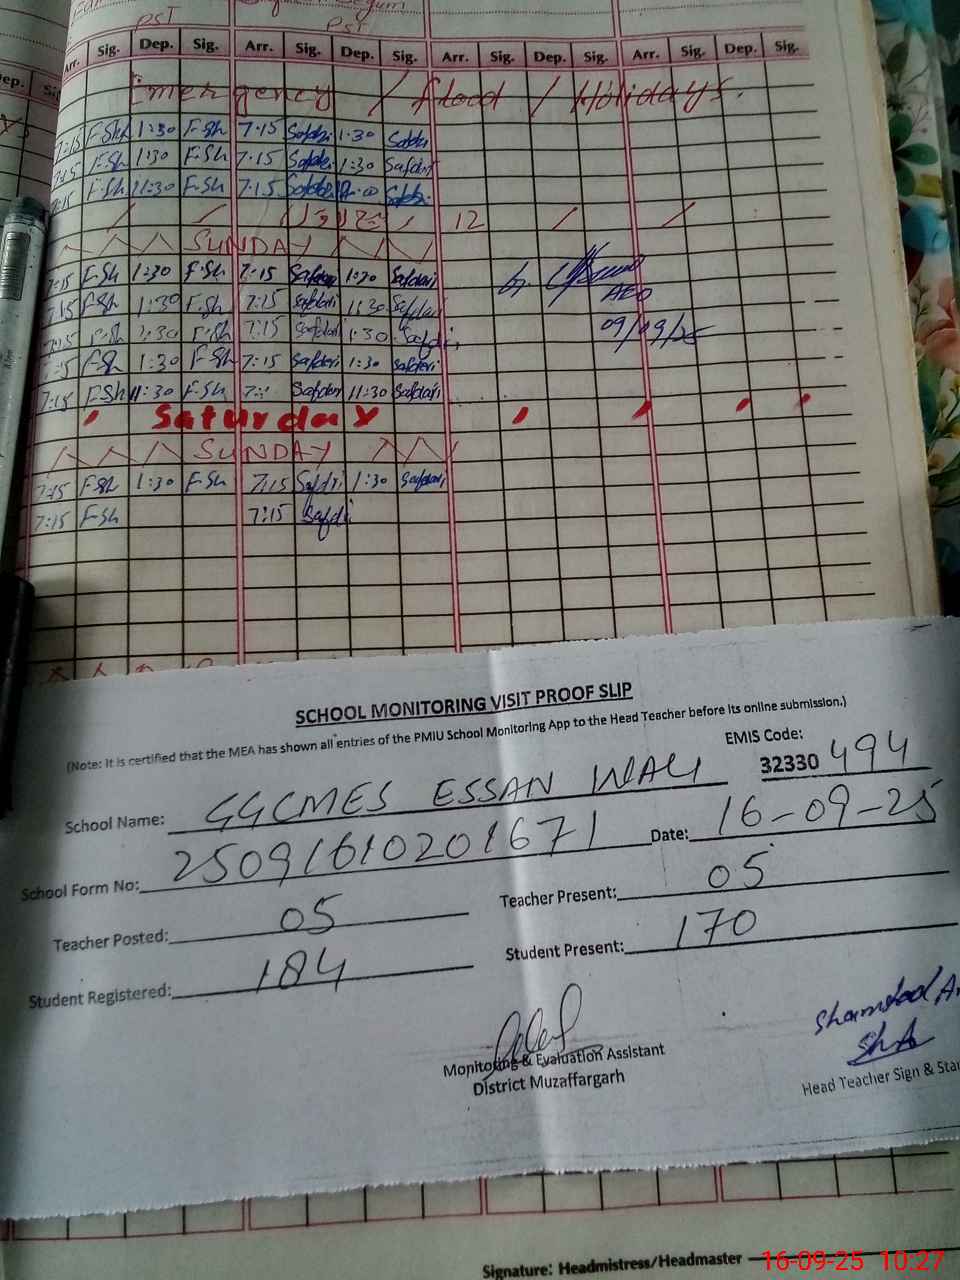 PST PST
Arr. Sig. Dep. Sig. Arr. Sig. Dep. Sig. Arr. Sig. Dep. Sig. Arr. Sig. Dep. Sig.
Emergency / flood / Holidays.
7:15 F-Sh 1:30 F-Sh 7:15 Safdri 1:30 Safdri
7:15 F-Sh 1:30 F-Sh 7:15 Safdri 1:30 Safdri
7:15 F-Sh 11:30 F-Sh 7:15 Safdri
12
SUNDAY
7:15 F-Sh 1:30 F-Sh 7:15 Safdari 1:30 Safdari
7:15 F-Sh 1:30 F-Sh 7:15 Safdari 1:30 Safdari
AEO
7:15 F-Sh 1:30 F-Sh 7:15 Safdari 1:30 Safdari
09/09/25
7:15 F-Sh 1:30 F-Sh 7:15 Safdari 1:30 Safdari
7:15 F-Sh 11:30 F-Sh Safdari 11:30 Safdari
Saturday
SUNDAY
7:15 F-Sh 1:30 F-Sh 7:15 Safdri 1:30 Safdari
7:15 F-Sh 7:15 Safdri
SCHOOL MONITORING VISIT PROOF SLIP
(Note: It is certified that the MEA has shown all entries of the PMIU School Monitoring App to the Head Teacher before its online submission.)
School Name: GGCMES ESSAN WALI EMIS Code: 32330 494
School Form No: 25091610201671 Date: 16-09-25
Teacher Posted: 05 Teacher Present: 05
Student Registered: 184 Student Present: 170
Monitoring & Evaluation Assistant
District Muzaffargarh
Shamshad
Head Teacher Sign &
Signature: Headmistress/Headmaster
16-09-25 10:27